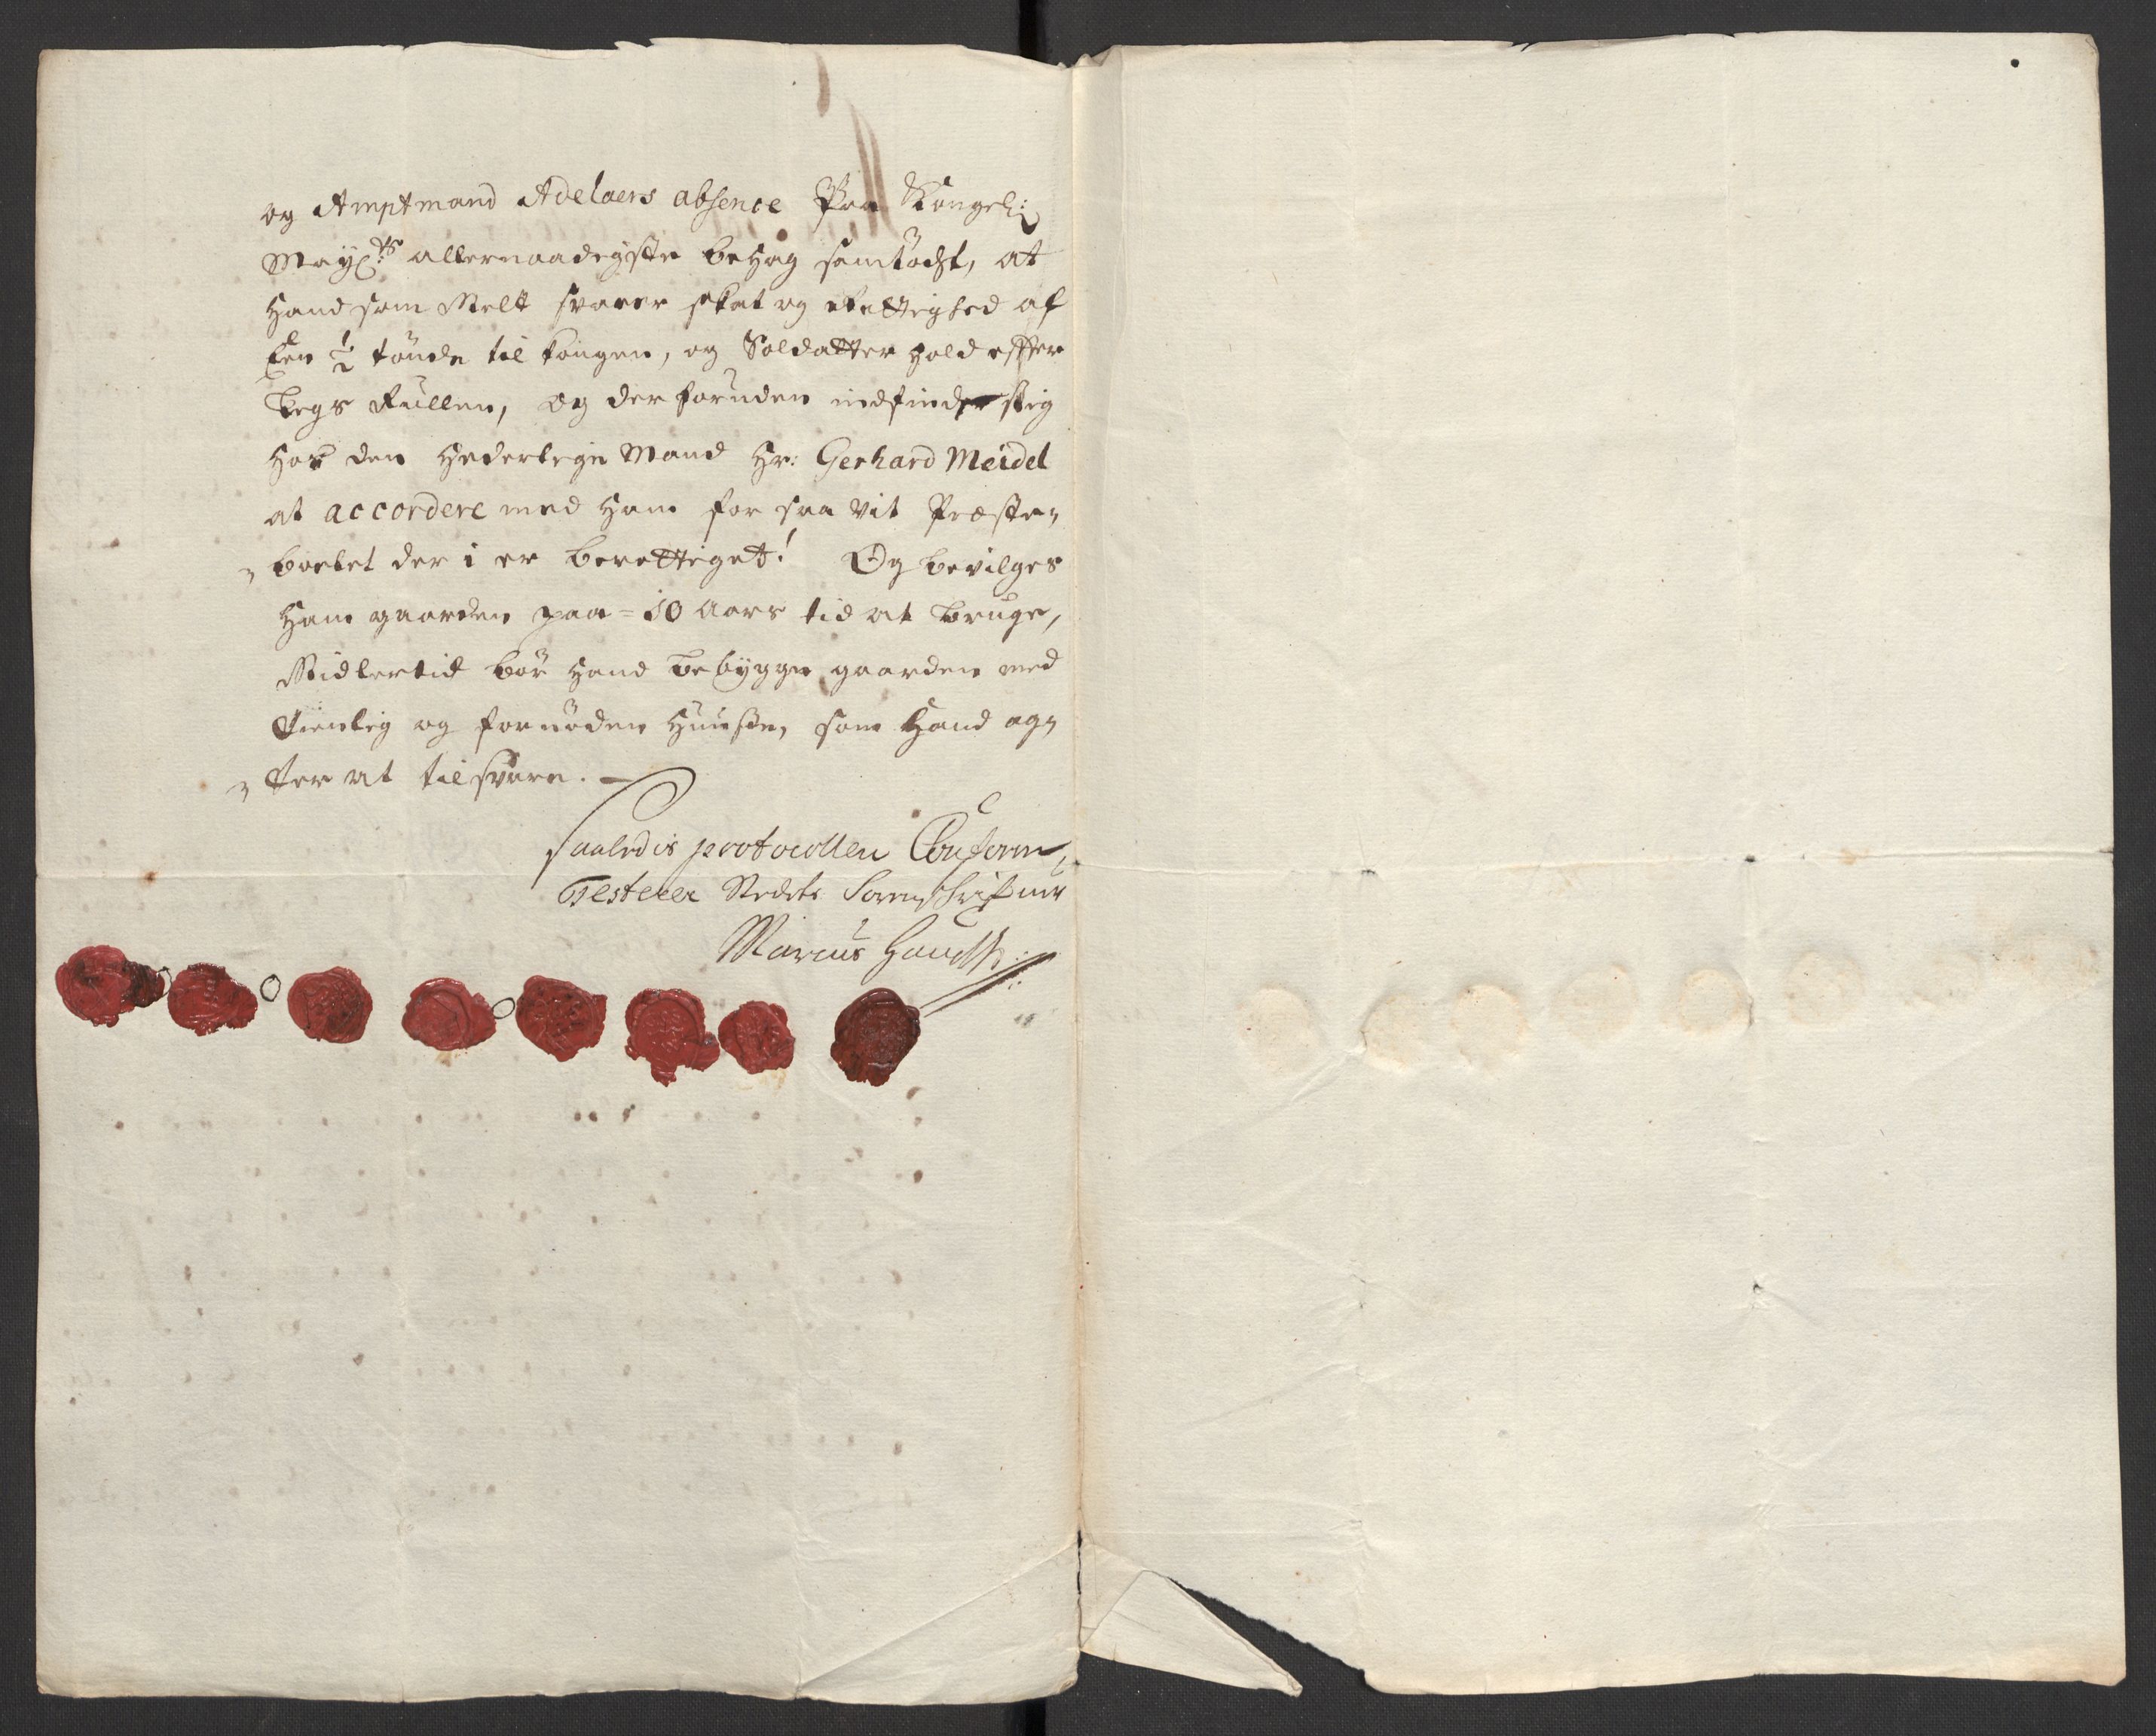 og Amptmand Adelaers absence Paa Kongel:
May:ts allernaadigste behag samtöcht, at
hand som Melt svarer skat og rettighed af
Een 1/2 tönde til kongen, og Soldatter hold effter
Legs Rullen, og der foruden indfinder sig
hos den hederlige Mand Hr: Gerhard Meidel
at accordere med ham for saa vit Præste„
„boelet der i er berettiget! Og bevilges
ham gaarden paa = 10 Aars tid at bruge,
Midlertid bör hand bebygge gaarden med
tienlig og fornöden huuse, som hand ag„
„ter at tilsvare.
Saaledis protocollen Conform,
Testerer Stedets Sorenskrifver
Marcus